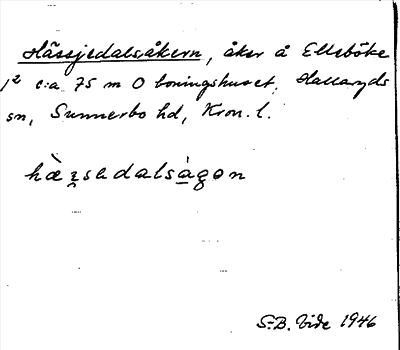 Hässjedalsåkern, åker å Ellsböke
1² c:a 75 m O boningshuset, Hallaryds
sn, Sunnerbo hd, Kron. l.
S-B. Vide 1946